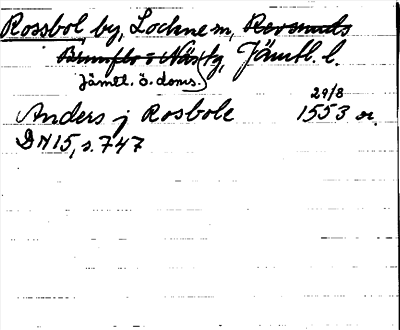 Rossbol by, Lockne sn, Revsunds
Brunflo o Näs tg, Jämtl. l.
Jämtl. ö. doms.
29/8
Anders j Rosbole 1553 or.
DN 15, s. 747